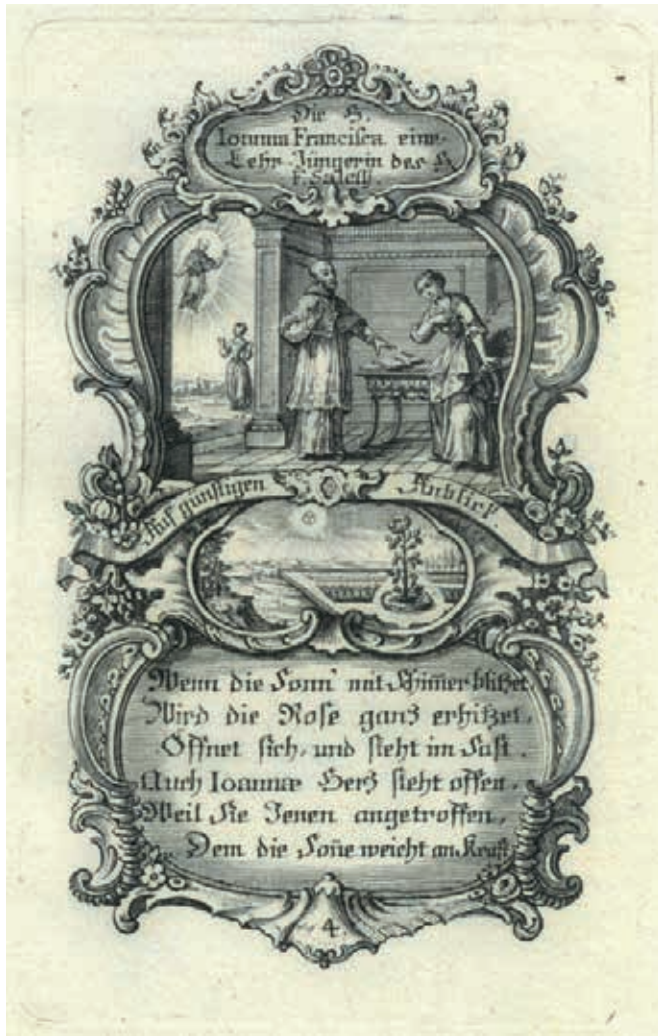 Die H.
Ioanna Francisca eine
Lehr-Jüngerin des H
F. Salesii.
Auf günstigen Anblick.
Wenn die Sonn mit Schim̅er blitzet,
Wird die Rose ganz erhitzet,
Öffnet sich, und steht im Saft.
Auch Ioannæ Herz steht offen,
Weil Sie Jenen angetroffen,
Dem die Son̅e weicht an Kraft
4.